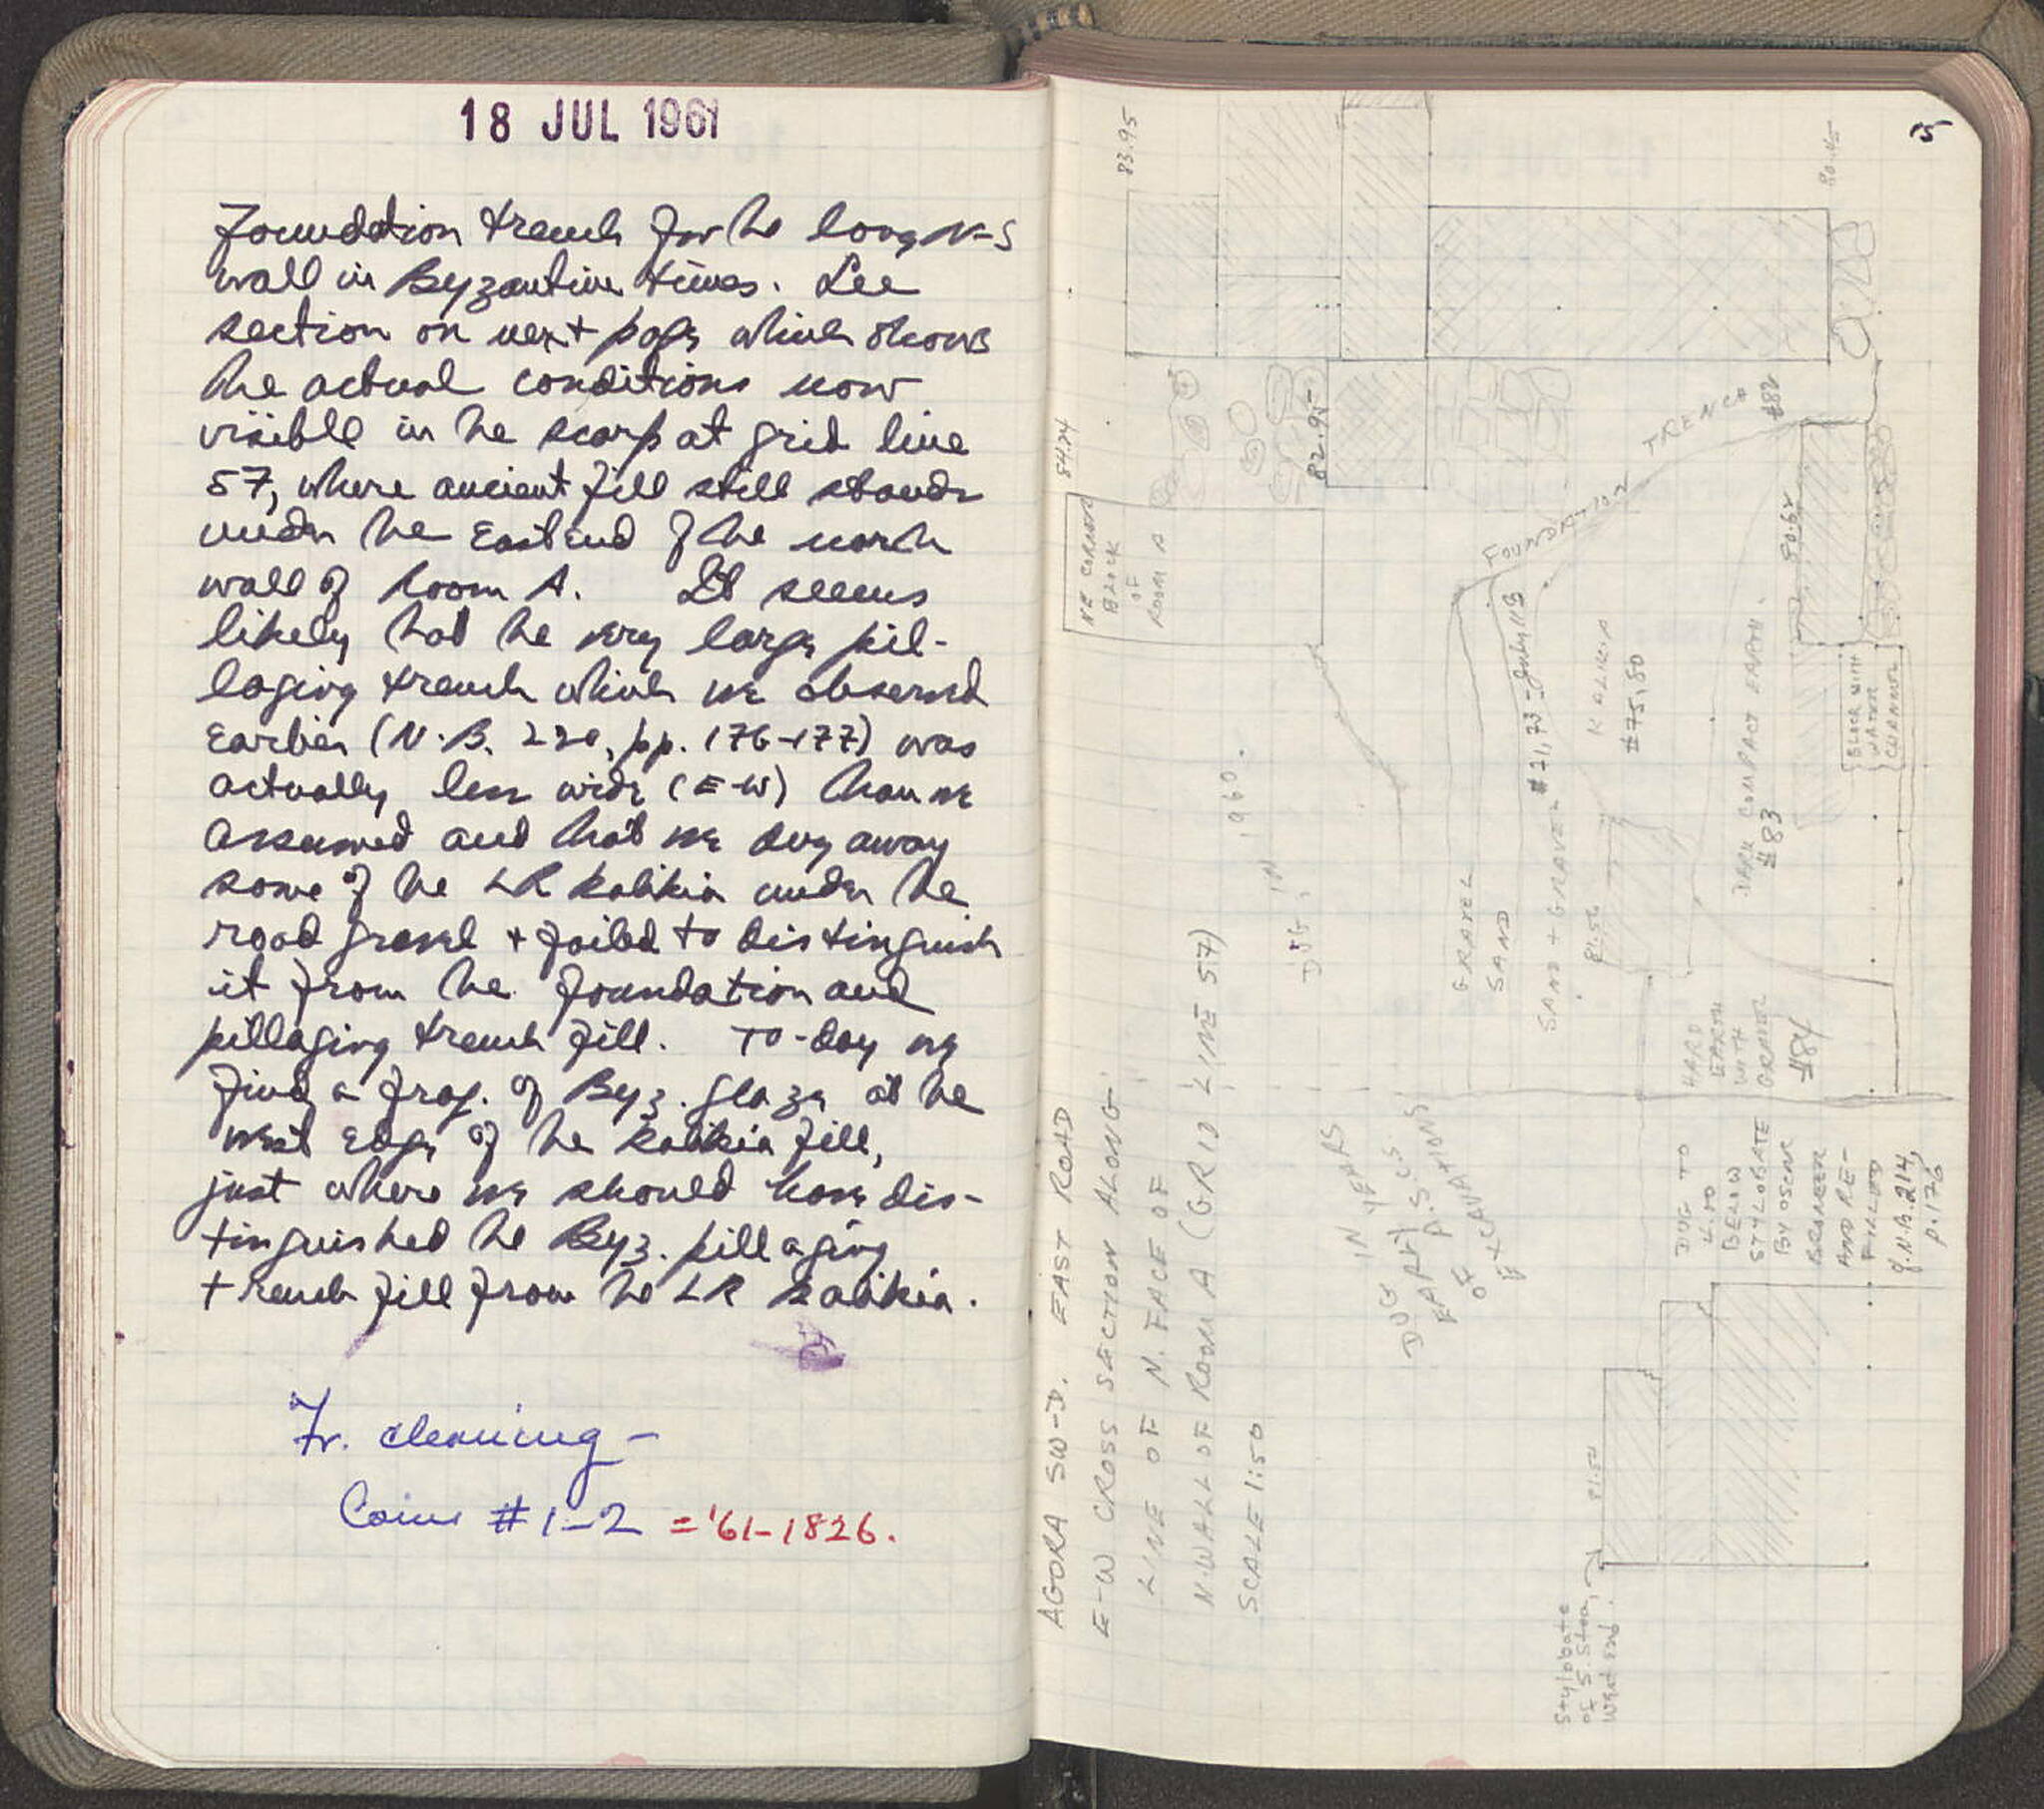 18 JUL 1961
Foundation trench for the long N-S
wall in Byzantine times. See
section on next page which shows
the actual conditions now
visible in the scarp at grid line
57, where ancient fill still stands
under the East end of the north
wall of Room A. It seems
likely that the very large pil-
laging trench which we observed
Earlier (N.B. 220, pp. 176-177) was
actually less wide (E-W) than we
assumed and that we dug away
some of the LR kalikia under the
road gravel + failed to distinguish
it from the foundation and
pillaging trench fill. To-day we
find a frag. of Byz. glaze at the
west Edge of the kalikia fill,
just where we should have dis-
tinguished the Byz. pillaging
trench fill from the LR kalikia.
Fr. cleaning -
Coins # 1-2 = '61-1826.
5
AGORA SW-D. EAST ROAD
E-W CROSS SECTION ALONG
LINE OF N. FACE OF
N. WALL OF ROOM A (GRID LINE 57)
SCALE 1:50
83.95
84.24
NE CORNER
BLOCK
OF
ROOM A
82.95
80.45
FOUNDATION TRENCH
#82
80.62
DUG IN 1960.
GRAVEL
SAND
SAND + GRAVEL #21,73 - July 11 B
KALIKIA
#75,80
81.56
DARK COMPACT EARTH.
#83
BLOCK WITH
WATER
CHANNEL
HARD
EARTH
WITH
GRAVEL
#84
DUG IN YEARS
EARLY A.S.C.S
OF EXCAVATIONS
DUG TO
BELOW
STYLOBATE
BY OSCAR
BRONEER
AND RE-
FILLED
cf. N.B. 214,
p. 176
81.54
Stylobate
of S. Stoa,
West End.